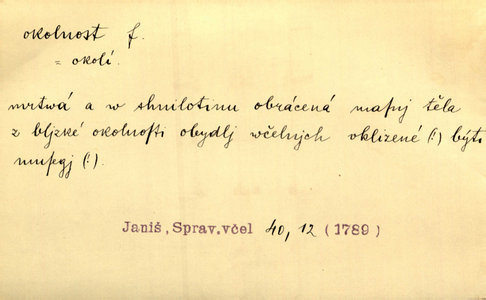 okolnost f.
= okolí.
mrtwá a w shnilotinu obrácená maſyj těla
z bljzké okolnoſti obydlj wčelných vklizené (!) býti
muſegj (!).
Janiš, Sprav.včel 40, 12 (1789)